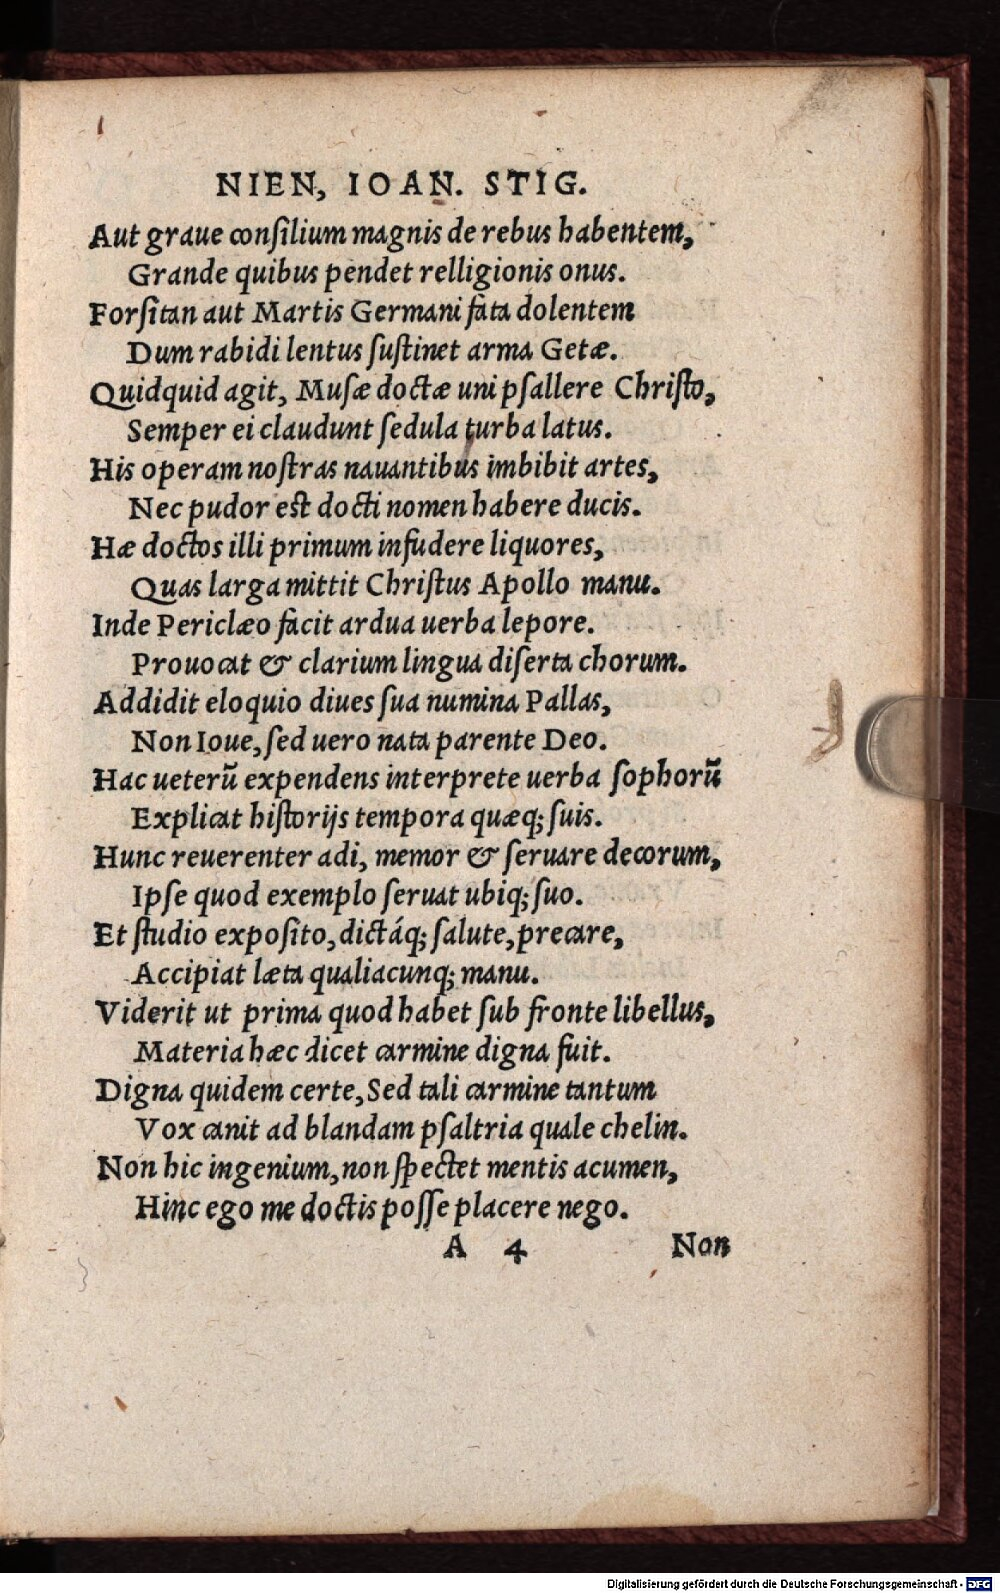 NIEN, IOAN. STIG.
Aut graue consilium magnis de rebus habentem,
Grande quibus pendet relligionis onus.
Forsitan aut Martis Germani fata dolentem
Dum rabidi lentus sustinet arma Getæ.
Quidquid agit, Musæ doctæ uni psallere Christo,
Semper ei claudunt sedula turba latus.
His operam nostras nauantibus imbibit artes,
Nec pudor est docti nomen habere ducis.
Hæ doctos illi primum infudere liquores,
Quas larga mittit Christus Apollo manu.
Inde Periclæo facit ardua uerba lepore.
Prouocat & clarium lingua diserta chorum.
Addidit eloquio diues sua numina Pallas,
Non Ioue, sed uero nata parente Deo.
Hac ueterũ expendens interprete uerba sophorũ
Explicat historijs tempora quæq; suis.
Hunc reuerenter adi, memor & seruare decorum,
Ipse quod exemplo seruat ubiq; suo.
Et studio exposito, dictáq; salute, precare,
Accipiat læta qualiacunq; manu.
Viderit ut prima quod habet sub fronte libellus,
Materia hæc dicet carmine digna fuit.
Digna quidem certe, Sed tali carmine tantum
Vox canit ad blandam psaltria quale chelin.
Non hic ingenium, non spectet mentis acumen,
Hinc ego me doctis posse placere nego.
A 4 Non
Digitalisierung gefördert durch die Deutsche Forschungsgemeinschaft - DFG